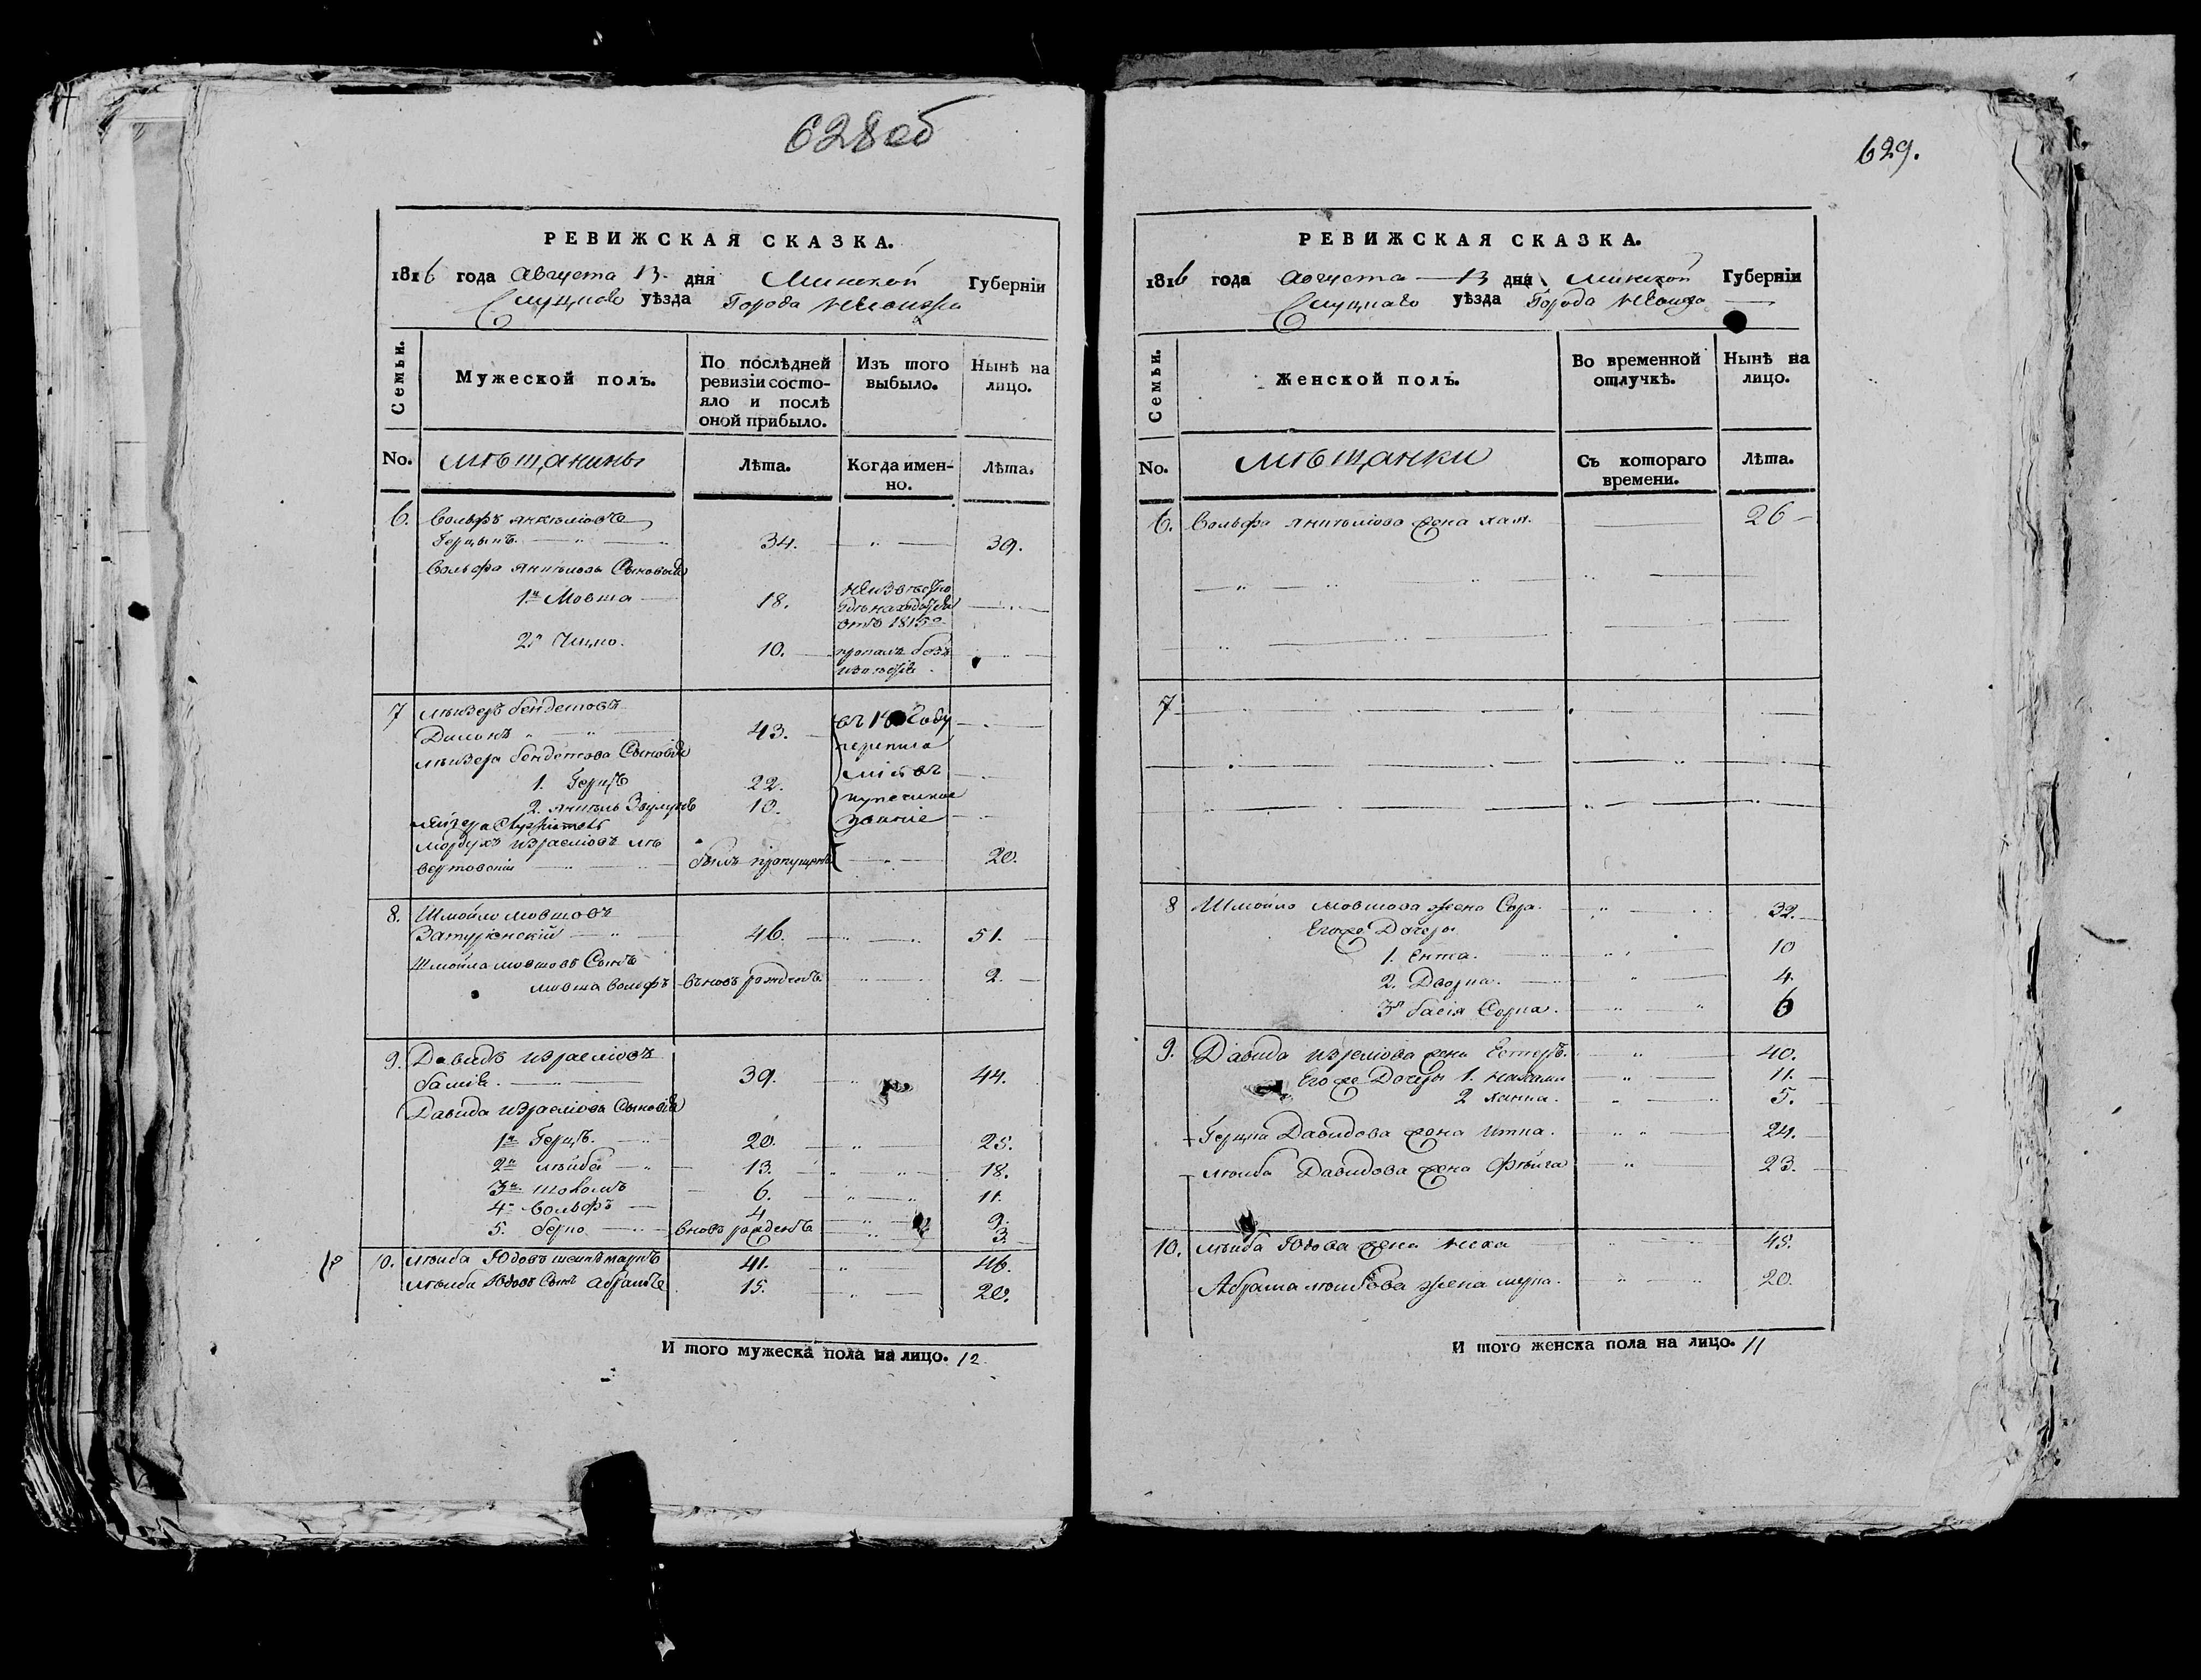 628об
РЕВИЖСКАЯ СКАЗКА.
1816 года Августа 13. дня Минской Губернiи
Слуцкаго уѣзда Города Несвижа
Семьи.
Мужеской полъ.
По послѣдней
ревизiи состо-
яло и послѣ
оной прибыло.
Изъ того
выбыло.
Нынѣ на
лицо.
No.
мѣщанины
Лѣта.
Когда имен-
но.
Лѣта.
6. Вольфъ Янкелiовъ
Герцыкъ. 34. 39.
Вольфа Сыновья
1й Мовша 18.
отъ 1815го
2й 10. пропалъ безъ
7 Лѣйзеръ Бендетовъ
43. Году
Лѣйзера Бендетова Сыновья
1. Герцъ 22.
2. 10.
въ
купеческое
званiе
Мордухъ Израелiовъ
былъ пропущенъ 20.
8. Шмойло Мовшовъ
Затуренскiй 46. 51.
Шмойла Мовшовъ Сынъ
Мовша Вольфъ вновь рожденъ 2.
9. Давидъ Израелiовъ
39. 44.
Давида Израелiова Сыновья
1й Герцъ. 20. 25.
2й Лѣйба 13. 18.
3й 6. 11.
4й Вольфъ 4 9.
5. Берко вновь рожденъ 3.
10. Лѣйба Юдовъ 41. 46.
Лѣйба Юдовъ Сынъ Абрамъ 15. 20.
И того мужеска пола на лицо. 12.
629.
РЕВИЖСКАЯ СКАЗКА.
1816 года Августа 13 дня Минской Губернiи
Слуцкаго уѣзда Города Несвижа
Семьи.
Женской полъ.
Во временной
отлучкѣ.
Нынѣ на
лицо.
No.
мѣщанки
Съ котораго
времени.
Лѣта.
6. Вольфа Янкелiова жена Хая. 26
7
8 Шмойло Мовшова жена Сора. 32.
Егоже Дочеры
1. Ента. 10
2. Двойра. 4.
3я Басiя Сорка. 6
9. Давида Израелiова жена Естеръ. 40.
Егоже Дочеры 1. Нахами 11.
2 Ханна. 5.
Герца Давидова жена Итка. 24.
Лѣйба Давидова жена Фейга 23.
10. Лѣйба Юдова жена Неха 45.
Абрама Лѣйбова жена Мерка. 20.
И того женска пола на лицо. 11